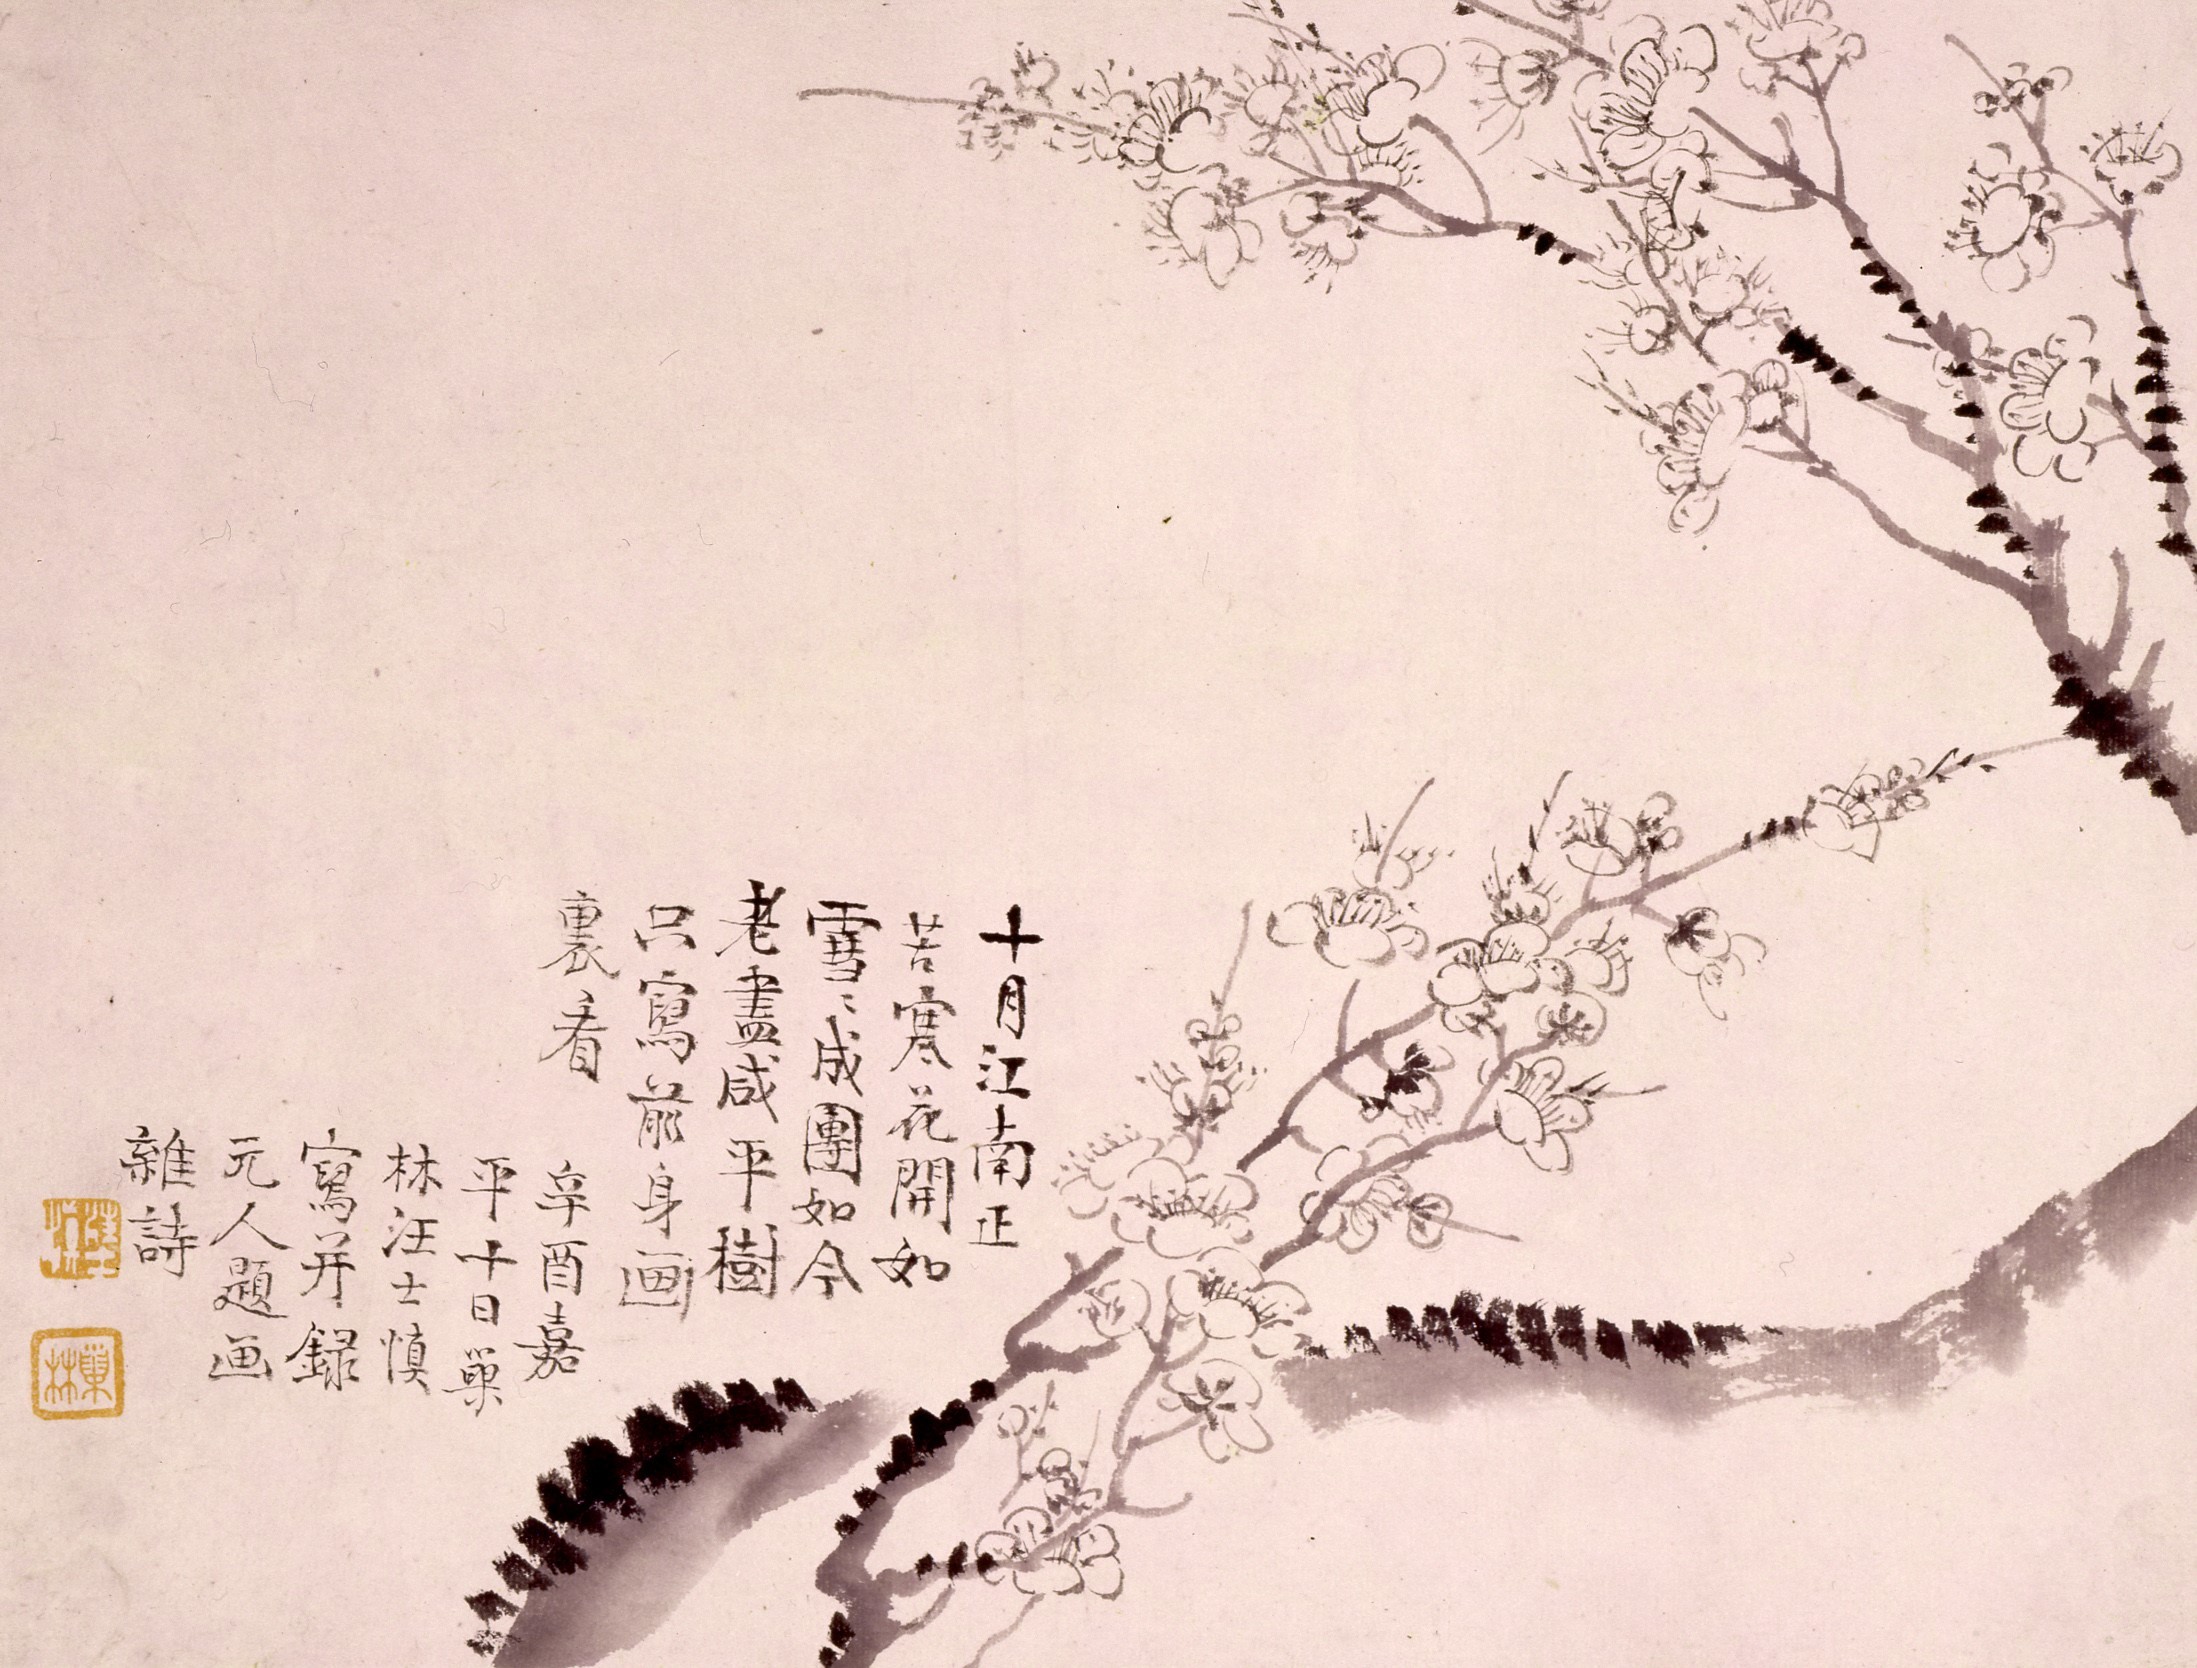 十月江南正
苦寒花開如
雪〻成團如今
老盡咸平樹
只寫前身画
裏看
辛酉嘉
平十日巢
林汪士慎
寫并錄
元人題画
雜詩
巢林